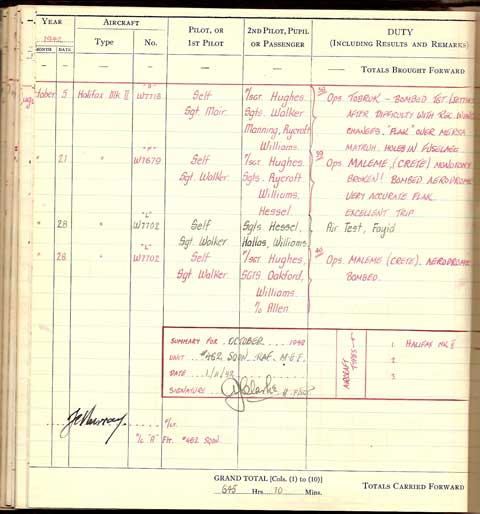 YEAR AIRCRAFT PILOT, OR 2ND PILOT, PUPIL DUTY
1942 1ST PILOT OR PASSENGER (INCLUDING RESULTS AND REMARKS)
MONTH DATE Type No.
— — — — — — — TOTALS BROUGHT FORWARD
tober 5 Halifax Mk II W7718 Self F/Sgt. Hughes. Ops. TOBRUK – BOMBED
Sgt. Mair. Sgts. Walker AFTER DIFFICULTY WITH
Manning, Rycroft CHANGES. "FLAK" OVER MERSA
Williams. MATRUH. HOLES IN FUSELAGE
" 21 " "F" W1679 Self F/Sgt. Hughes. 39 Ops. MALEME, (CRETE) MONOTONY
Sgt. Walker Sgts. Rycroft BROKEN! BOMBED AERODROME
Williams, VERY ACCURATE FLAK.
Hessel. EXCELLENT TRIP
" 28 " "L" W7702 Self Sgts. Hessel, Air Test, Fayid
Sgt. Walker Hallas, Williams
" 28 " "L" W7702 Self F/Sgt. Hughes, 40 Ops. MALEME (CRETE). AERODROME
Sgt Walker. SGTS. Oakford, BOMBED.
Williams.
Allen.
SUMMARY FOR OCTOBER 1942
UNIT #462 SQDN. RAF. M.E.F.
DATE 1/11/42
SIGNATURE
AIRCRAFT TYPES
1. HALIFAX MK II
2
3.
"A" Flt. #462 SQDN.
GRAND TOTAL [Cols. (1) to (10)]
645 Hrs. 10 Mins.
TOTALS CARRIED FORWARD